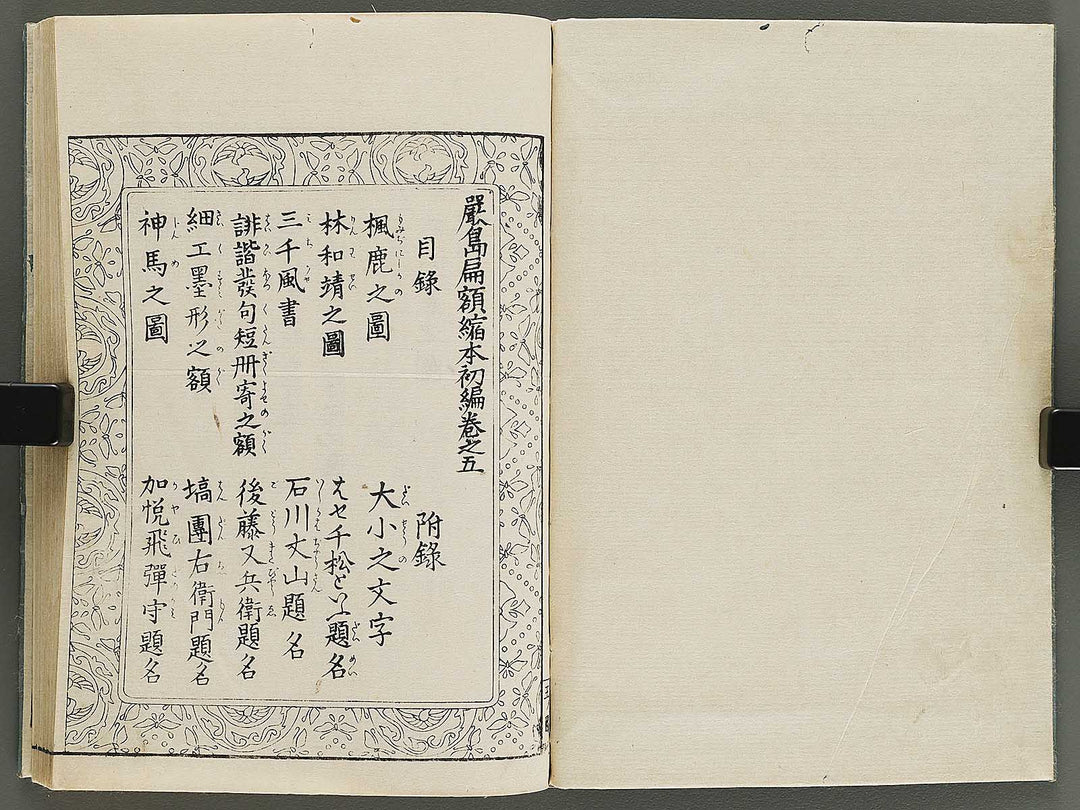 嚴島扁額縮本初編卷之五
目錄
楓鹿之圖
林和靖之圖
三千風書
誹諧發句短冊寄之額
細工墨形之額
神馬之圖
附錄
大小之文字
はせ千松といふ題名
石川丈山題名
後藤又兵衛題名
塙團右衛門題名
加悅飛彈守題名